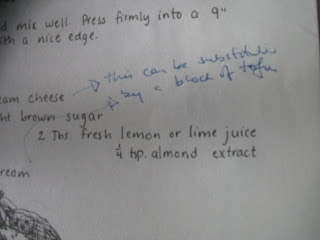 d mix well. Press firmly into a 9"
ith a nice edge.
this can be substitute
eam cheese
by a block of tofu
ht brown sugar
2 Tbs. fresh lemon or lime juice
¼ tsp. almond extract
ream